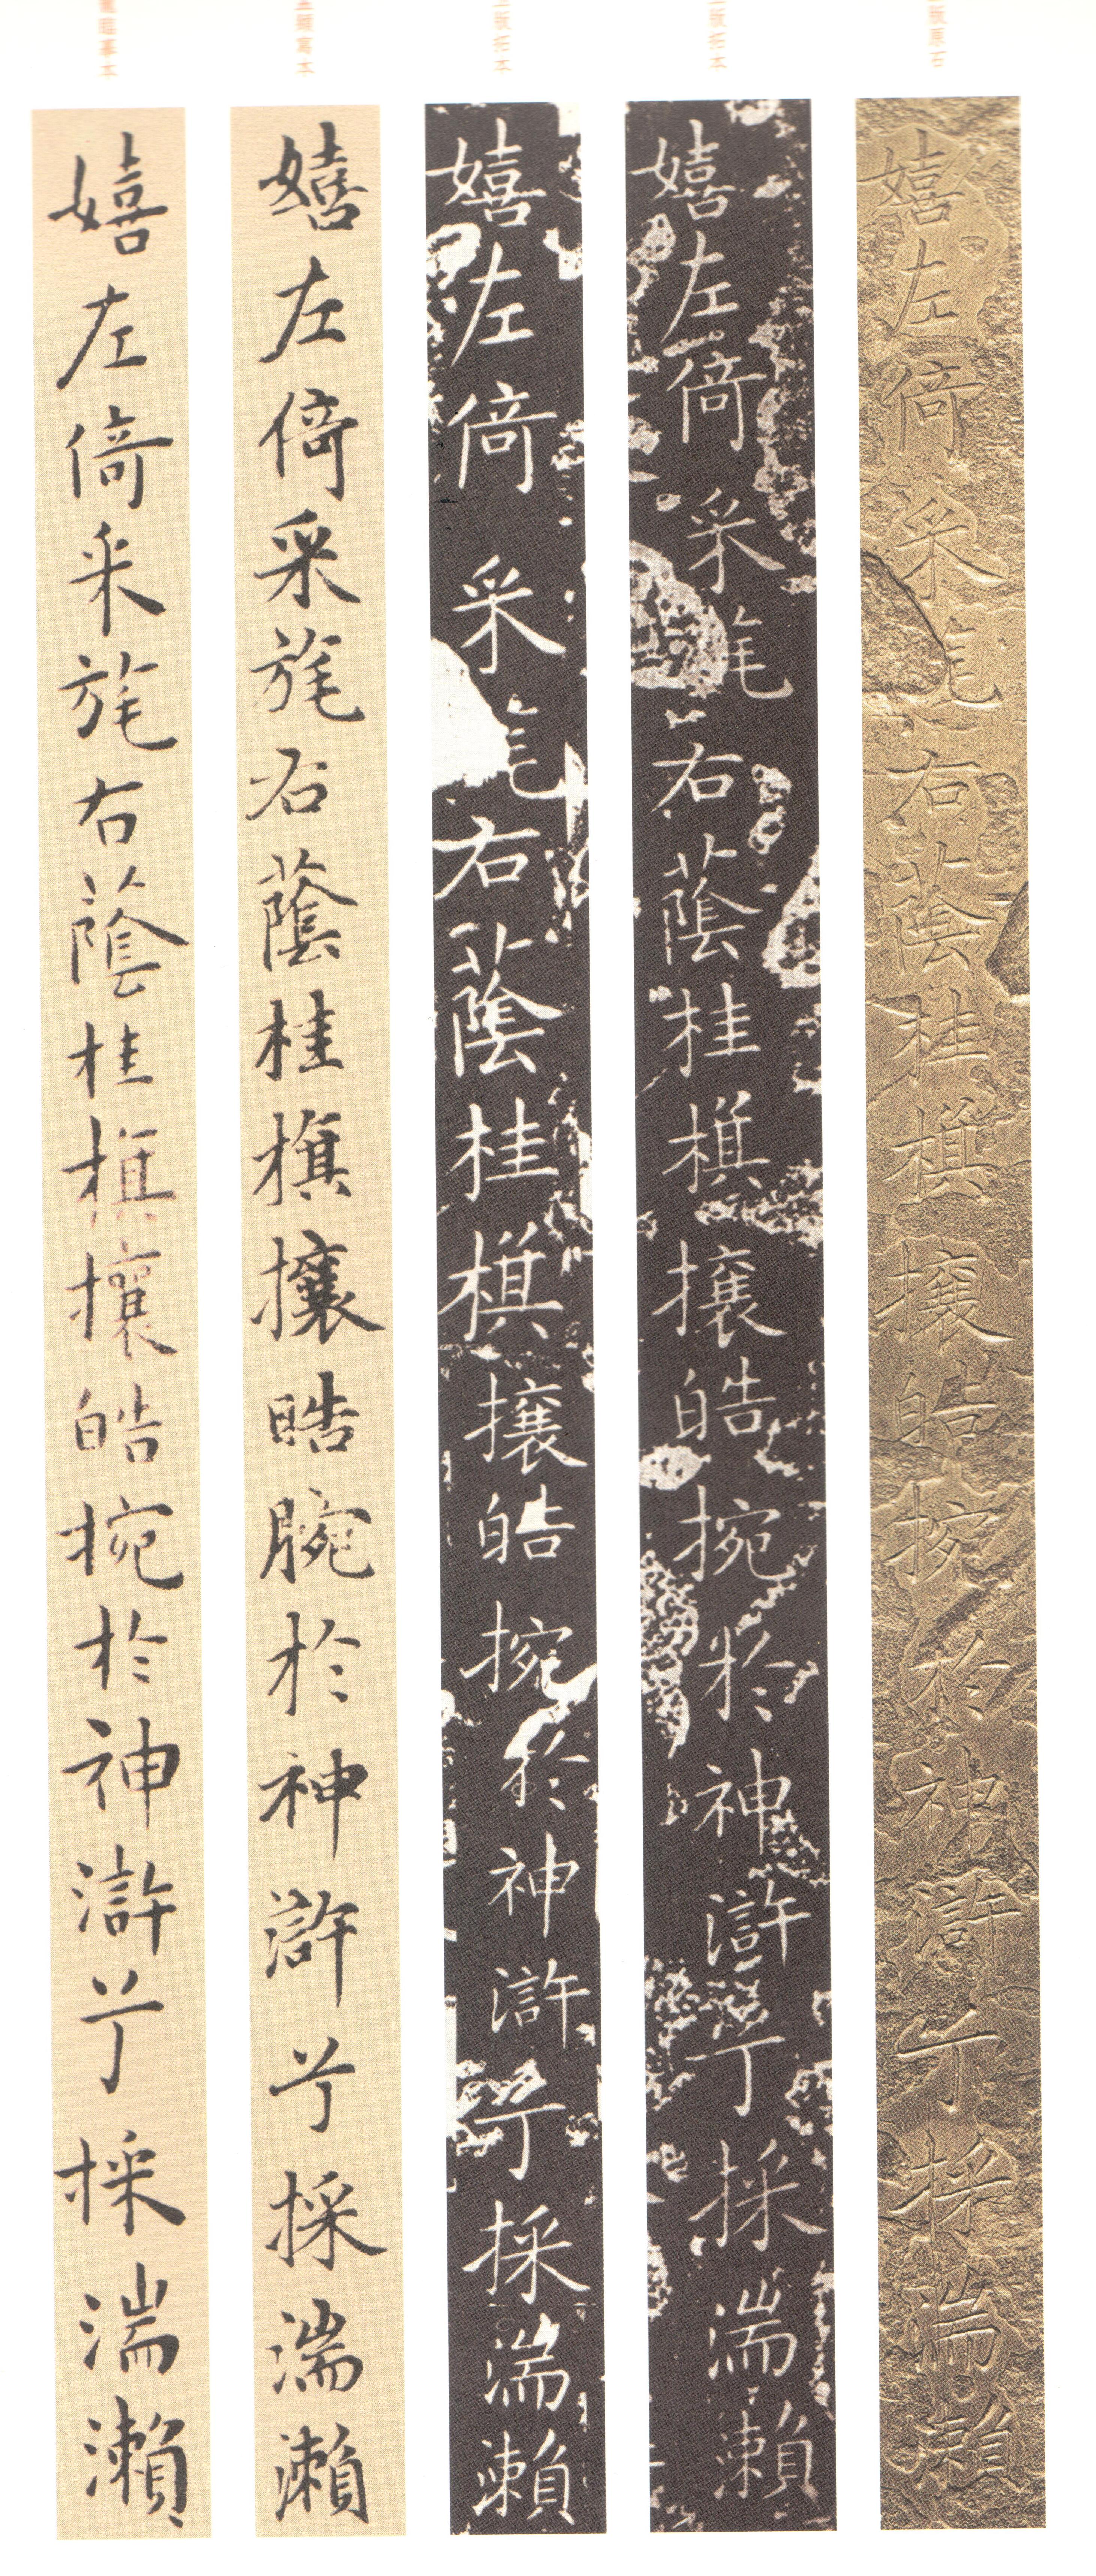 原石
嬉左倚采旄右蔭桂旗攘皓捥於神滸兮採湍瀨
拓本
嬉左倚采旄右蔭桂旗攘皓捥於神滸兮採湍瀨
拓本
嬉左倚采旄右蔭桂旗攘皓捥於神滸兮採湍瀨
寫本
嬉左倚采旄右蔭桂旗攘皓腕於神滸兮採湍瀨
摹本
嬉左倚采旄右蔭桂旗攘皓捥於神滸兮採湍瀨